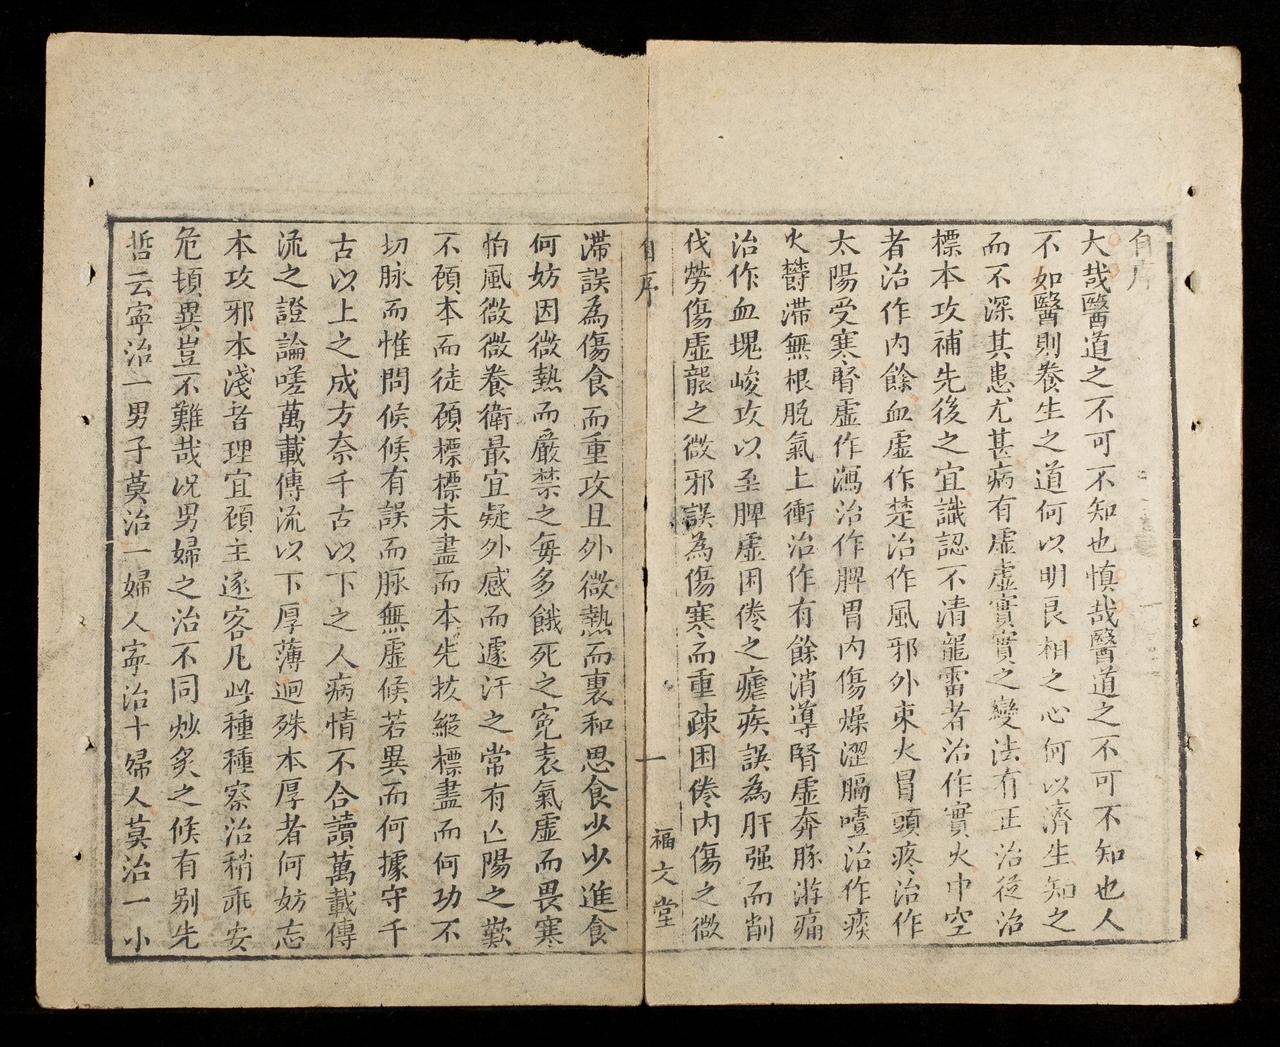 自序
大哉醫道之不可不知也慎哉醫道之不可不知也人
不如醫則養生之道何以明良相之心何以濟生知之
而不深其患尤甚病有虛虛實實之變法有正治從治
標本攻補先後之宜識認不清龍雷者治作實火中空
者治作內餘血虛作楚治作風邪外束火冒頭疼治作
太陽受寒腎虛作瀉治作脾胃內傷燥澀膈噎治作痰
火欝滯無根脫氣上衝治作有餘消導腎虛奔豚游痛
治作血塊峻攻以至脾虛困倦之瘧疾誤為肝强而削
伐勞傷虛羸之微邪誤為傷寒而重疎困倦內傷之微
自序
一
福文堂
滯誤為傷食而重攻且外微熱而裏和思食少少進食
何妨因微熱而嚴禁之每多餓死之寃表氣虛而畏寒
怕風微微養衛最宜疑外感而遽汗之常有亾陽之歎
不顧本而徒顧標標未盡而本先拔縱標盡而何功不
切脉而惟問候候有誤而脉無虛候若異而何據守千
古以上之成方奈千古以下之人病情不合讀萬載傳
流之證論嗟萬載傳流以下厚薄迥殊本厚者何妨忘
本攻邪本淺者理宜顧主逐客凡此種種察治稍乖安
危頓異豈不難哉况男婦之治不同炒炙之候有别先
哲云寧治一男子莫治一婦人寧治十婦人莫治一小